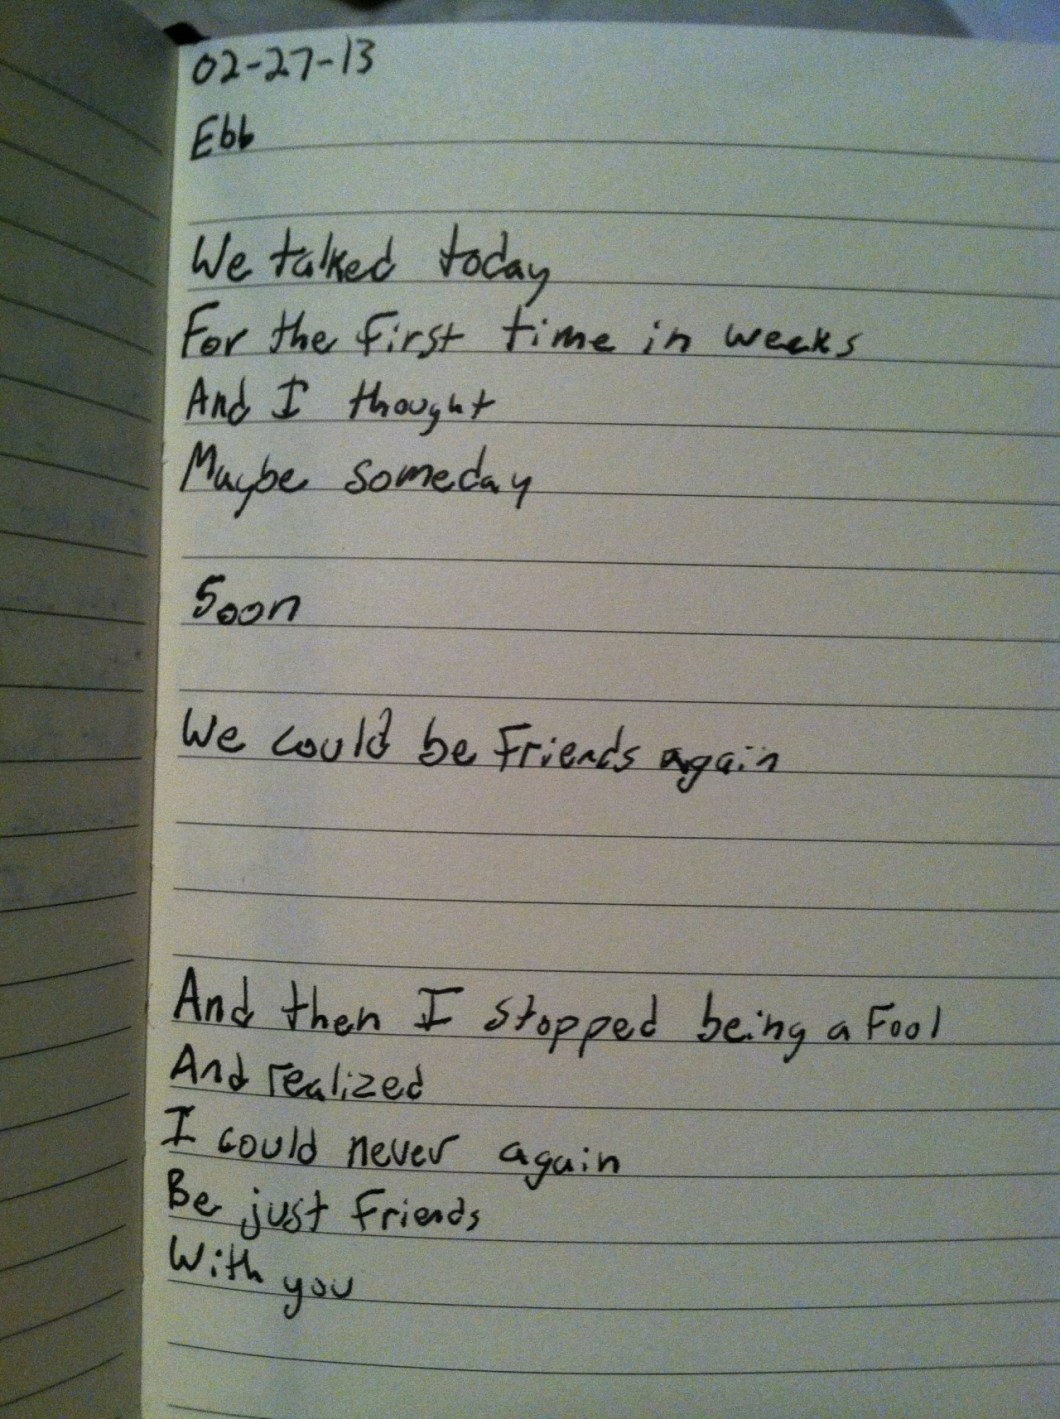 02-27-13
Ebb
We talked today
For the first time in weeks
And I thought
Maybe someday
Soon
We could be friends again
And then I stopped being a fool
And realized
I could never again
Be just friends
With you